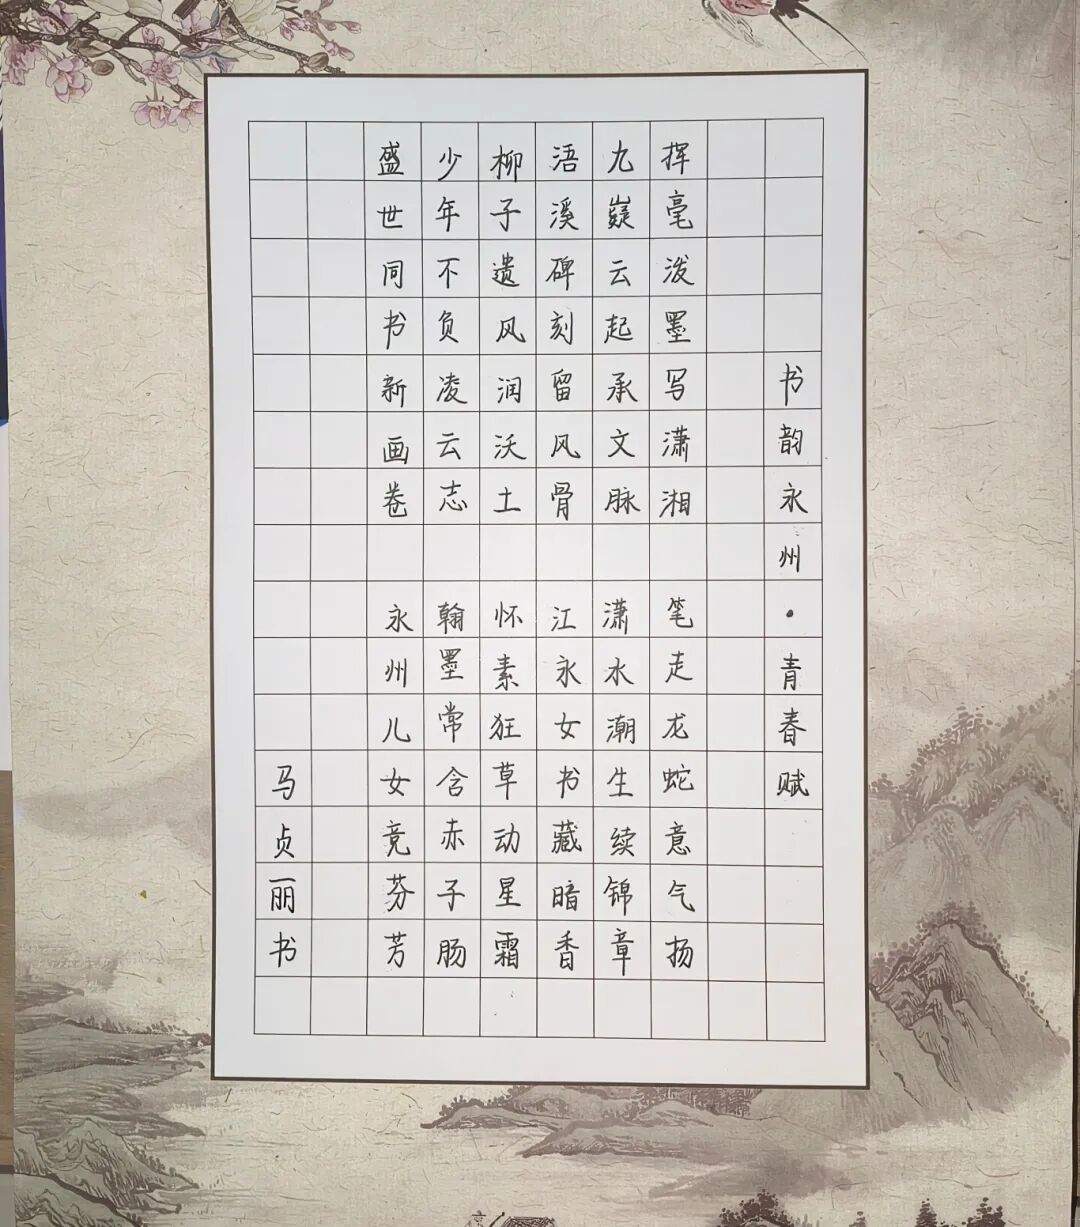 书韵永州·青春赋
挥毫泼墨写潇湘 笔走龙蛇意气扬
九嶷云起承文脉 潇水潮生续锦章
浯溪碑刻留风骨 江永女书藏暗香
柳子遗风润沃土 怀素狂草动星霜
少年不负凌云志 翰墨常含赤子肠
盛世同书新画卷 永州儿女竞芬芳
马贞丽书